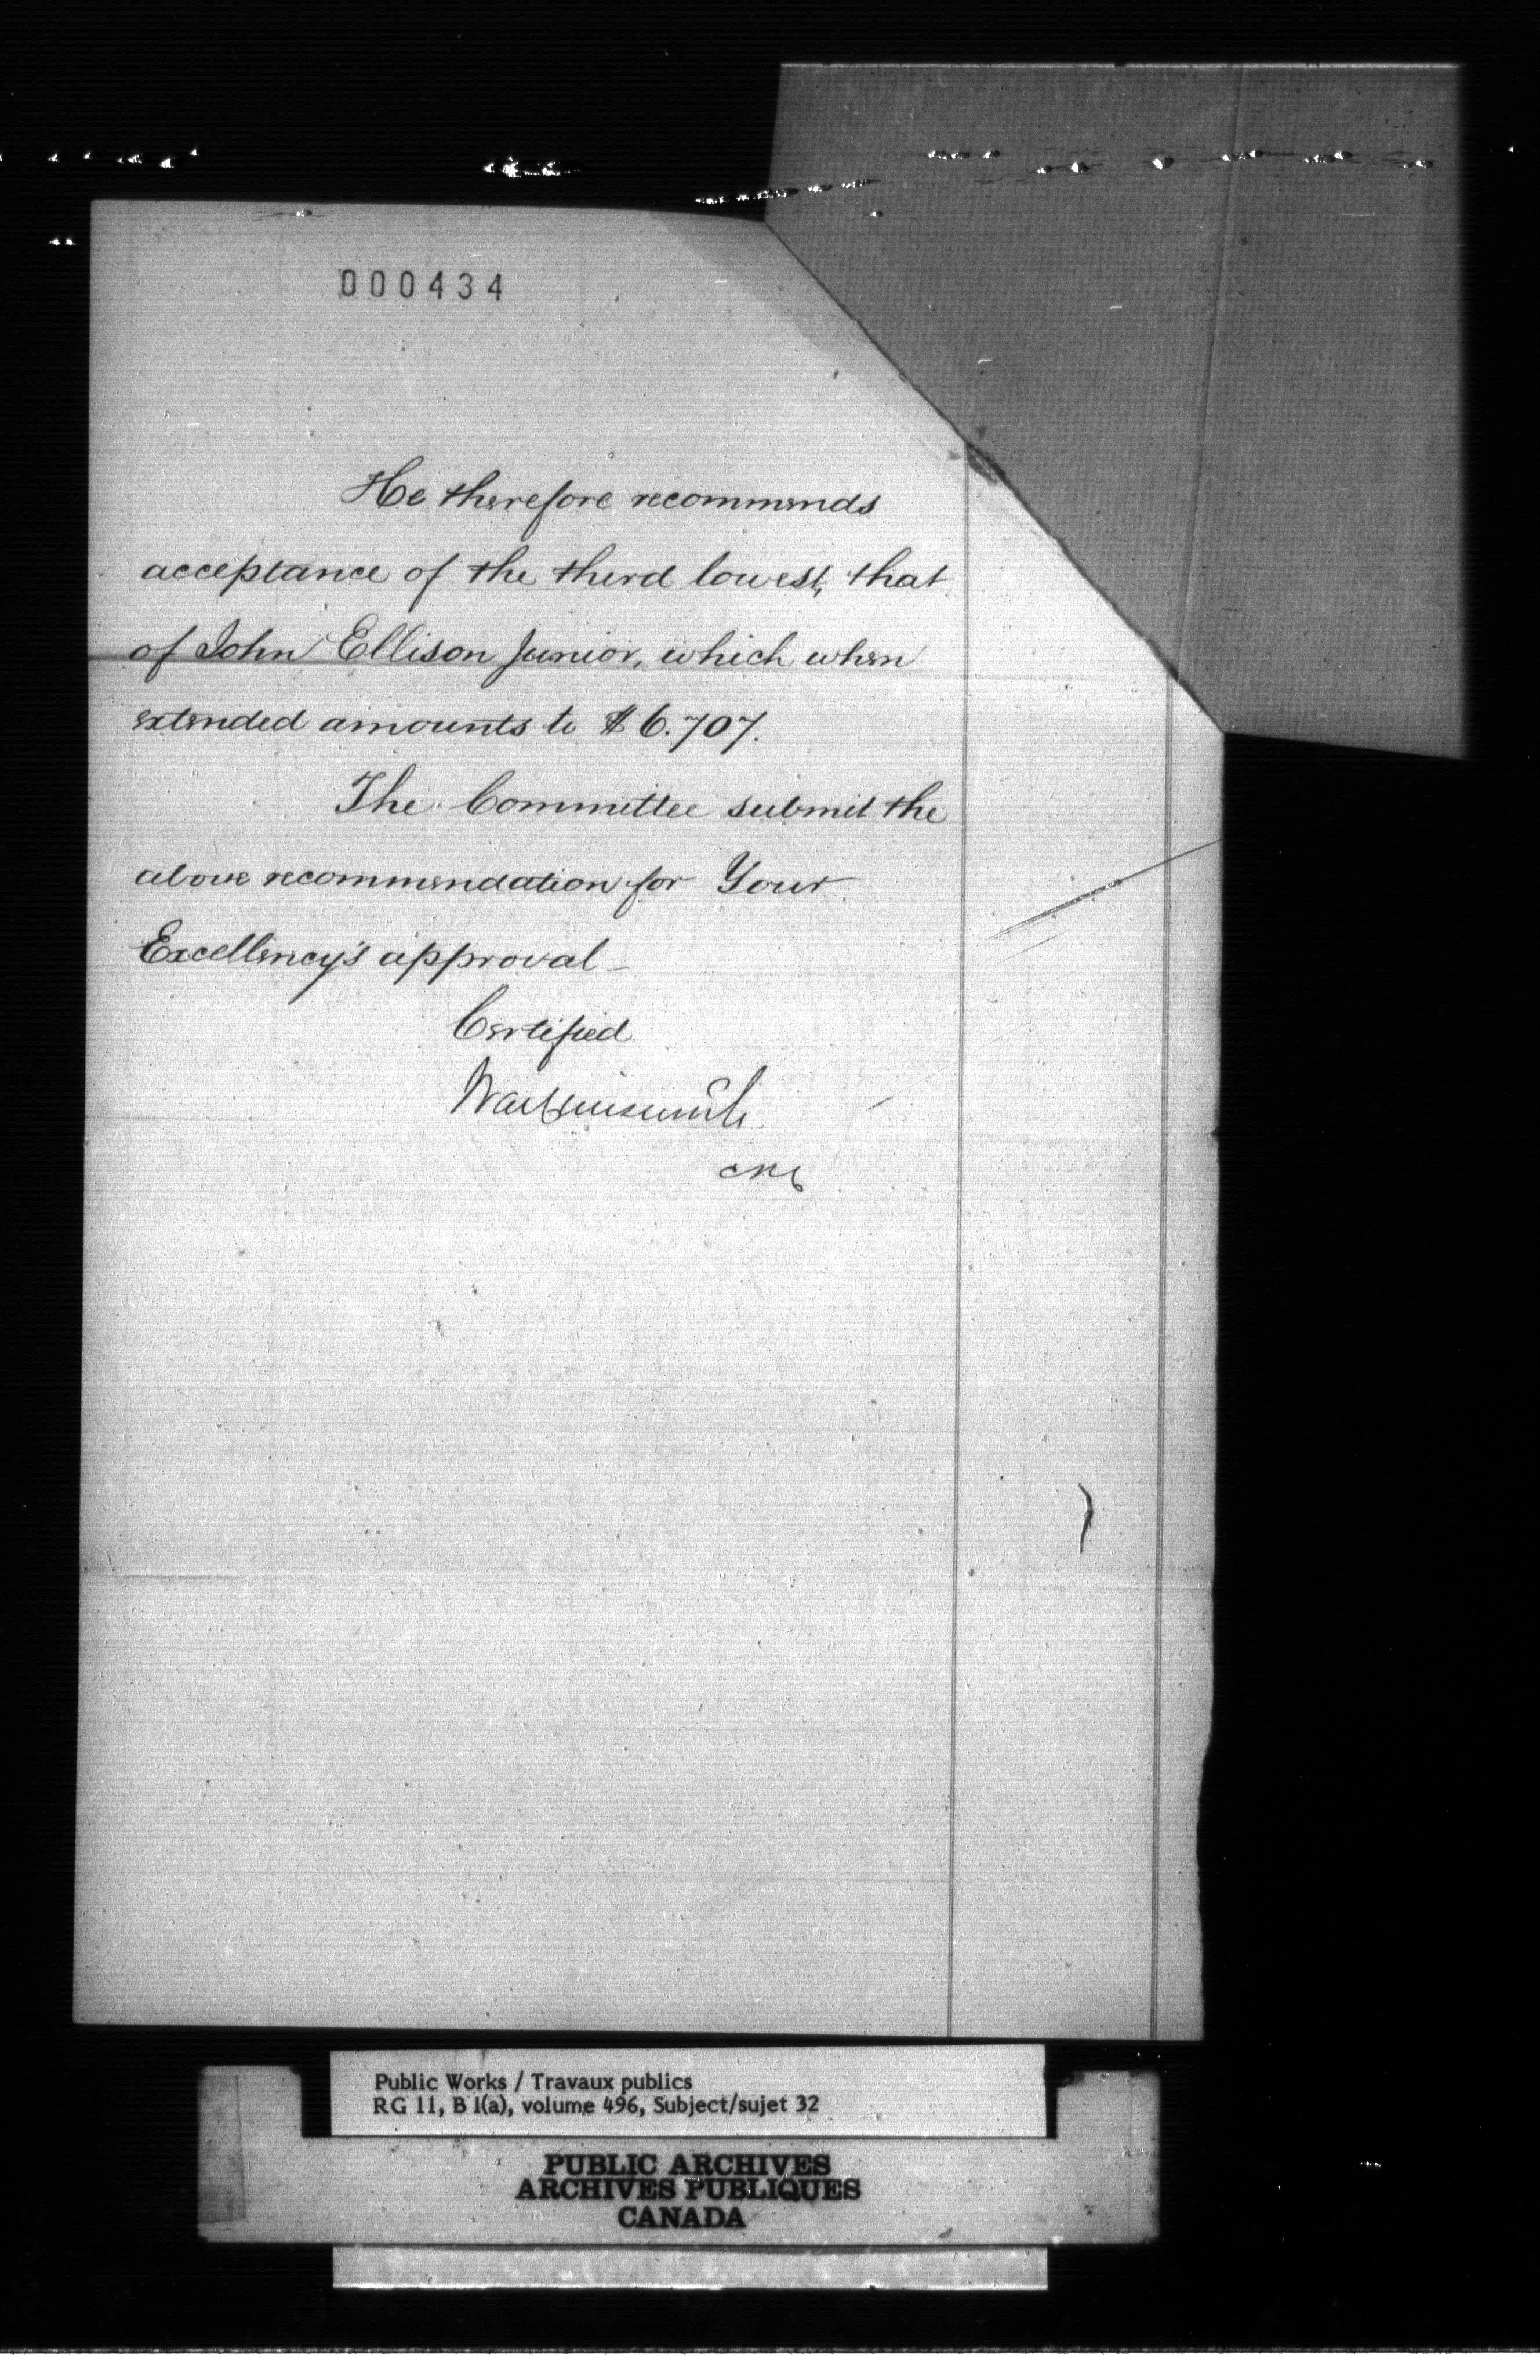 000434
He therefore recommends
acceptance of the third lowest, that
of John Ellison Junior, which when
extended amounts to $6.707.
The Committee submit the
above recommendation for Your
Excellency's approval_
Certified
Public Works / Travaux publics
RG 11, B 1(a), volume 496, Subject/sujet 32
PUBLIC ARCHIVES
ARCHIVES PUBLIQUES
CANADA